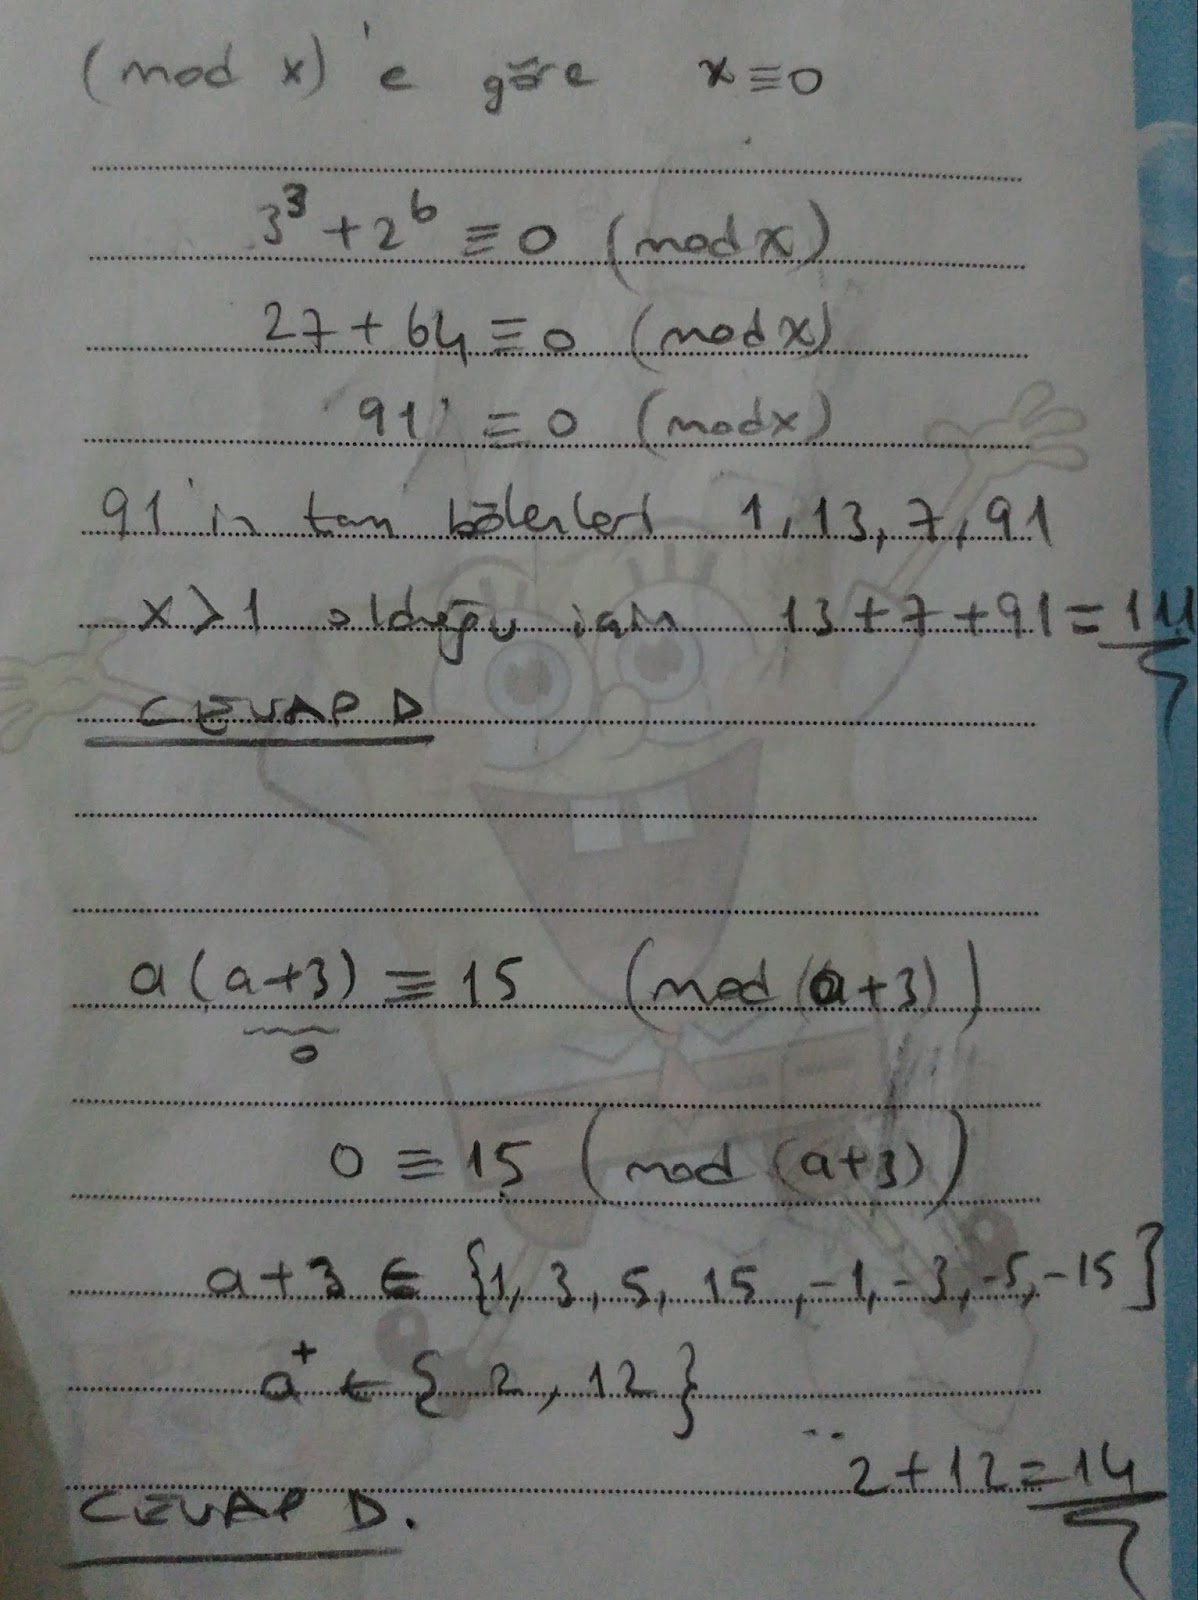 (mod x)'e göre x≡0
3³+2⁶ ≡ 0 (mod x)
27+64 ≡ 0 (mod x)
91 ≡ 0 (mod x)
91'in tam bölenleri 1,13,7,91
x>1 olduğu için 13+7+91=111
CEVAP D
a(a+3) ≡ 15 (mod (a+3))
0
0 ≡ 15 (mod (a+3))
a+3 ∈ {1, 3, 5, 15, -1, -3, -5, -15}
a⁺ ∈ {2, 12}
2+12=14
CEVAP D.